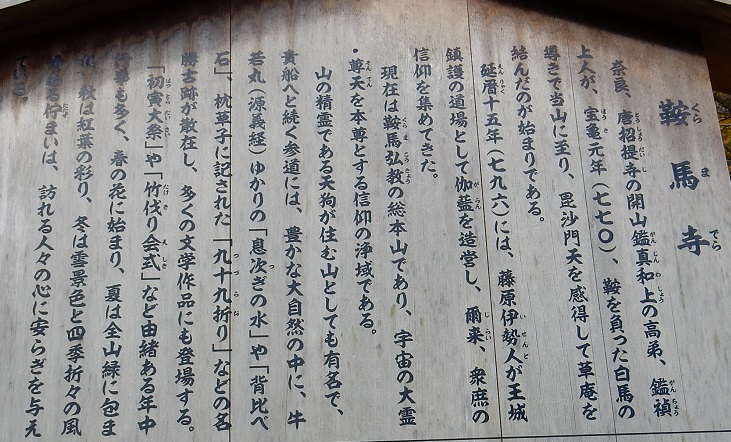 鞍馬寺
奈良、唐招提寺の開山鑑真和上の高弟、鑑禎
上人が、宝亀元年(七七〇)、鞍を負った白馬の
導きで当山に至り、毘沙門天を感得して草庵を
結んだのが始まりである。
延暦十五年(七九六)には、藤原伊勢人が王城
鎮護の道場として伽藍を造営し、爾来、衆庶の
信仰を集めてきた。
現在は鞍馬弘教の総本山であり、宇宙の大霊
・尊天を本尊とする信仰の浄域である。
山の精霊である天狗が住む山としても有名で、
貴船へと続く参道には、豊かな大自然の中に、牛
若丸(源義経)ゆかりの「息次ぎの水」や「背比べ
石」、枕草子に記された「九十九折り」などの名
勝古跡が散在し、多くの文学作品にも登場する。
「初寅大祭」や「竹伐り会式」など由緒ある年中
行事も多く、春の花に始まり、夏は全山緑に包ま
れ、秋は紅葉の彩り、冬は雪景色と四季折々の風
佇まいは、訪れる人々の心に安らぎを与え
ている。